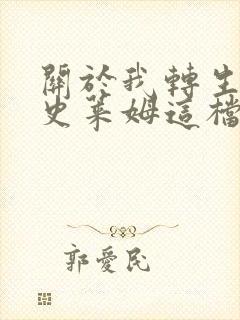 關於我轉生
史萊姆這檔
郭愛民